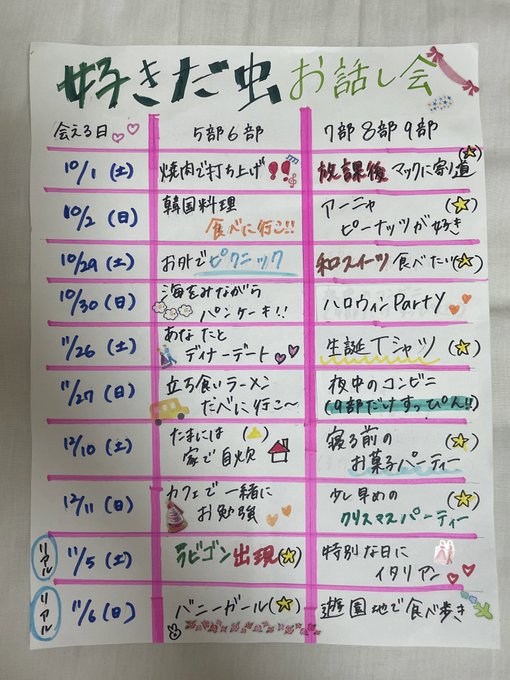 好きだ虫お話し会
会える日 5部6部 7部8部9部
10/1(土) 焼肉で打ち上げ!! 放課後マックに寄り道(☆)
10/2(日) 韓国料理
食べに行こ!!
アーニャ(☆)
ピーナッツが好き
10/29(土) お外でピクニック 和スイーツ食べたい(☆)
10/30(日) 海をみながら
パンケーキ!!
ハロウィンParty
11/26(土) あなたと
ディナーデート
生誕Tシャツ(☆)
11/27(日) 立ち食いラーメン
たべに行こ〜
夜中のコンビニ
(9部だけすっぴん!!)
12/10(土) たまには(△)
家で自炊
寝る前の(☆)
お菓子パーティー
12/11(日) カフェで一緒に
お勉強
少し早めの(☆)
クリスマスパーティー
リアル 11/5(土) ラビゴン出現(☆) 特別な日に
イタリアン
リアル 11/6(日) バニーガール(☆) 遊園地で食べ歩き